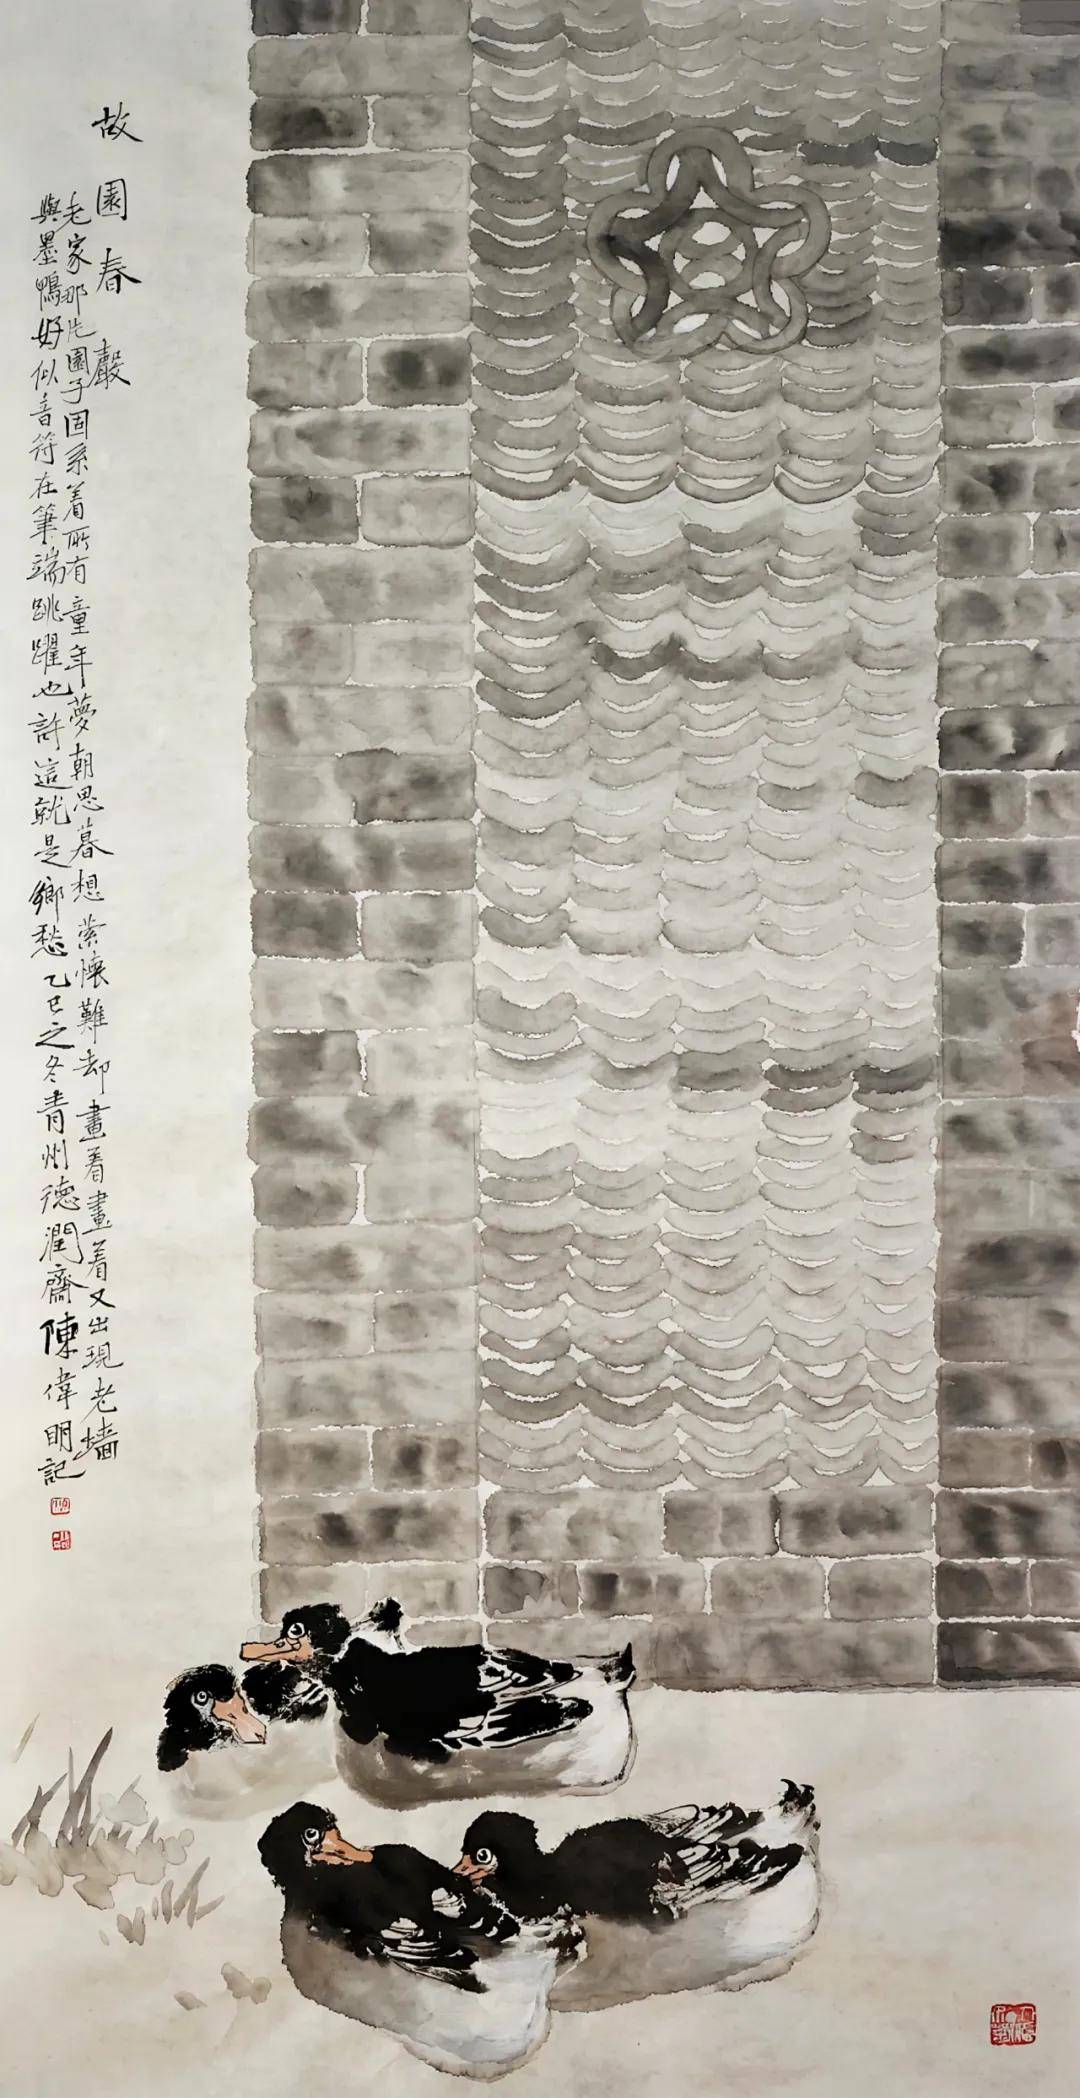 故園春聲
老家那片園子固系着所有童年夢朝思暮想縈懷難却畫着畫着又出現老墻
與墨鴨好似音符在筆端跳躍也許這就是鄉愁乙巳之冬青州德潤齋陳偉明記